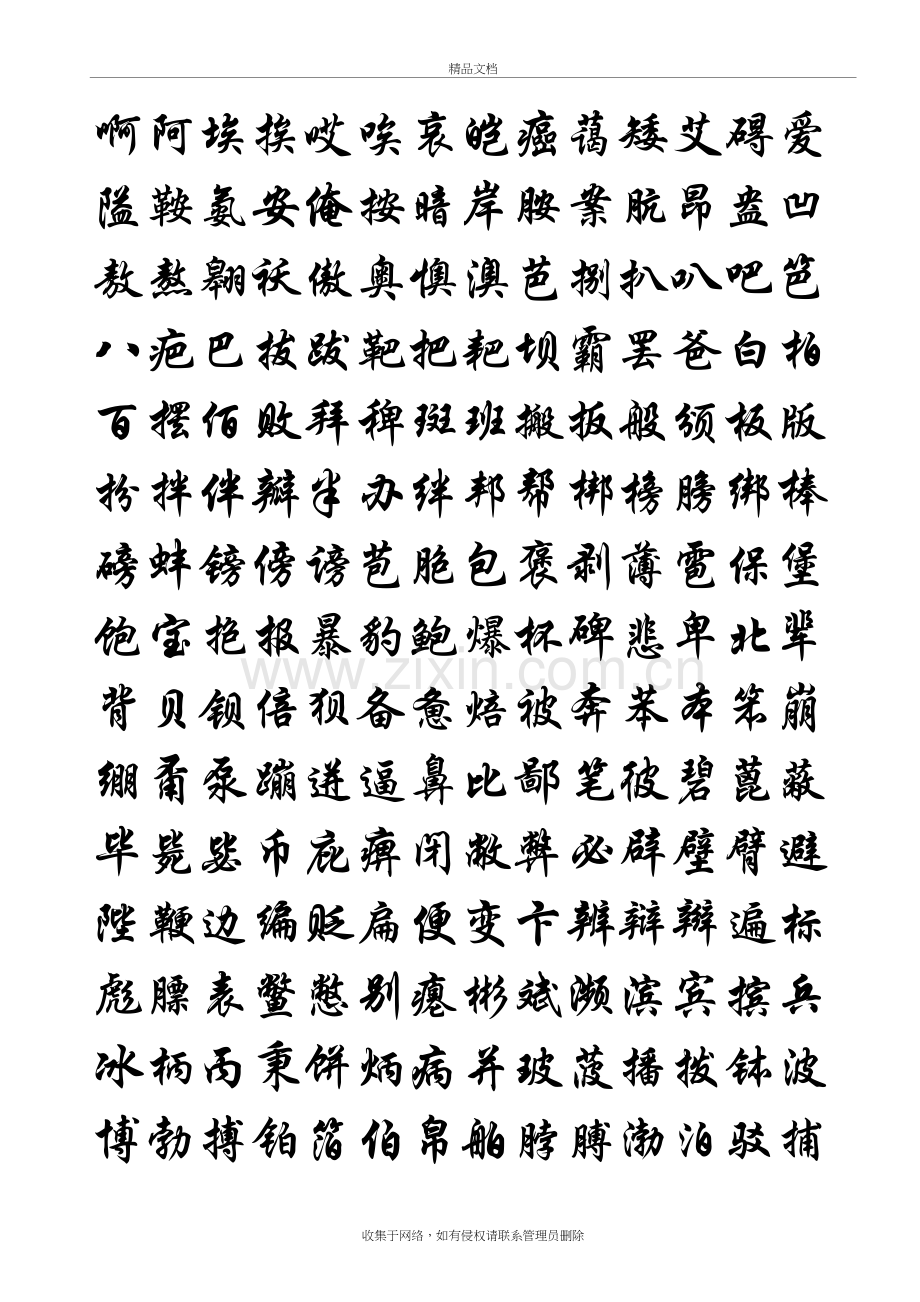 精品文档
啊阿埃挨哎唉哀皑癌蔼矮艾碍爱
隘鞍氨安俺按暗岸胺案肮昂盎凹
敖熬翱袄傲奥懊澳芭捌扒叭吧笆
八疤巴拔跋靶把耙坝霸罢爸白柏
百摆佰败拜稗斑班搬扳般颁板版
扮拌伴瓣半办绊邦帮梆榜膀绑棒
磅蚌镑傍谤苞胞包褒剥薄雹保堡
饱宝抱报暴豹鲍爆杯碑悲卑北辈
背贝钡倍狈备惫焙被奔苯本笨崩
绷甭泵蹦迸逼鼻比鄙笔彼碧蓖蔽
毕毙毖币庇痹闭敝弊必辟壁臂避
陛鞭边编贬扁便变卞辨辩辫遍标
彪膘表鳖憋别瘪彬斌濒滨宾摈兵
冰柄丙秉饼炳病并玻菠播拨钵波
博勃搏铂箔伯帛舶脖膊渤泊驳捕
www.zixin.com.cn
收集于网络，如有侵权请联系管理员删除